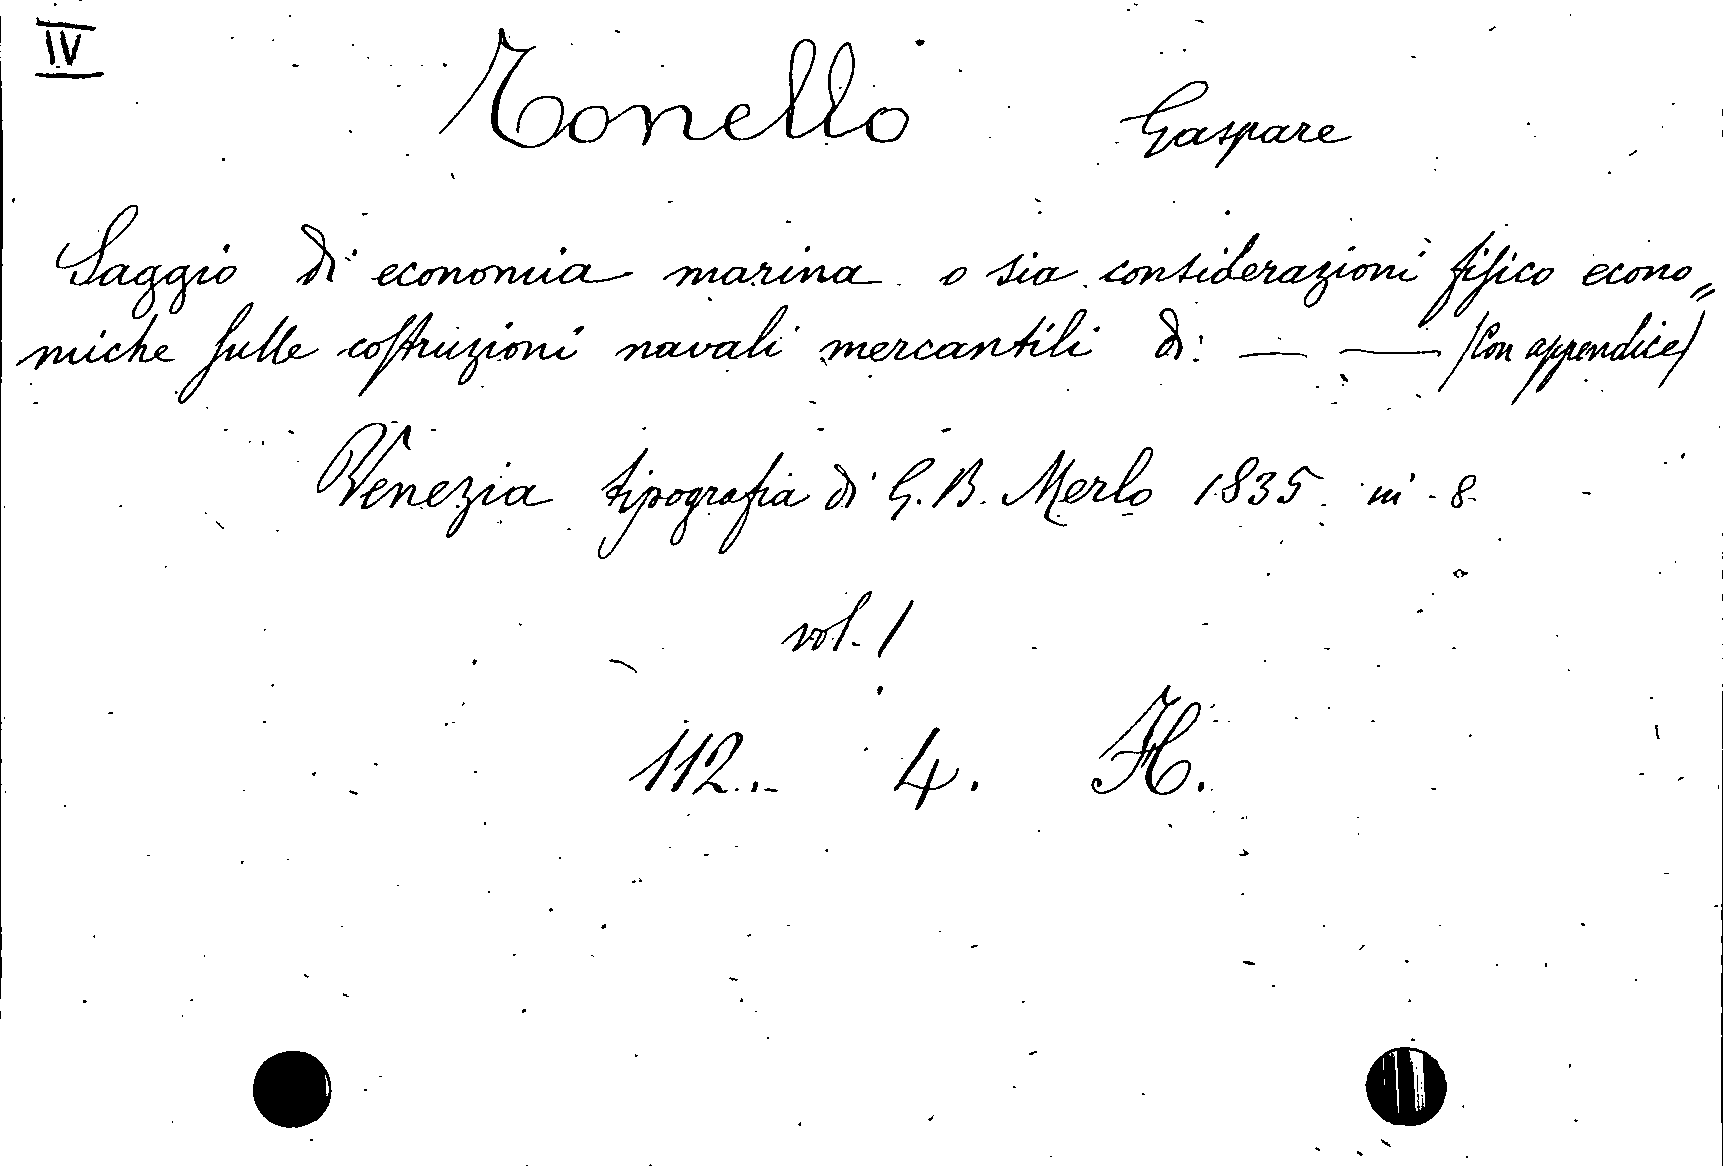 IV
Tonello Gaspare
Saggio di economia marina o sia considerazioni fisico econo„
miche sulle costruzioni navali mercantili di: — — (Con appendice)
Venezia tipografia di G. B. Merlo 1835 in 8
vol. 1
112. 4. H.